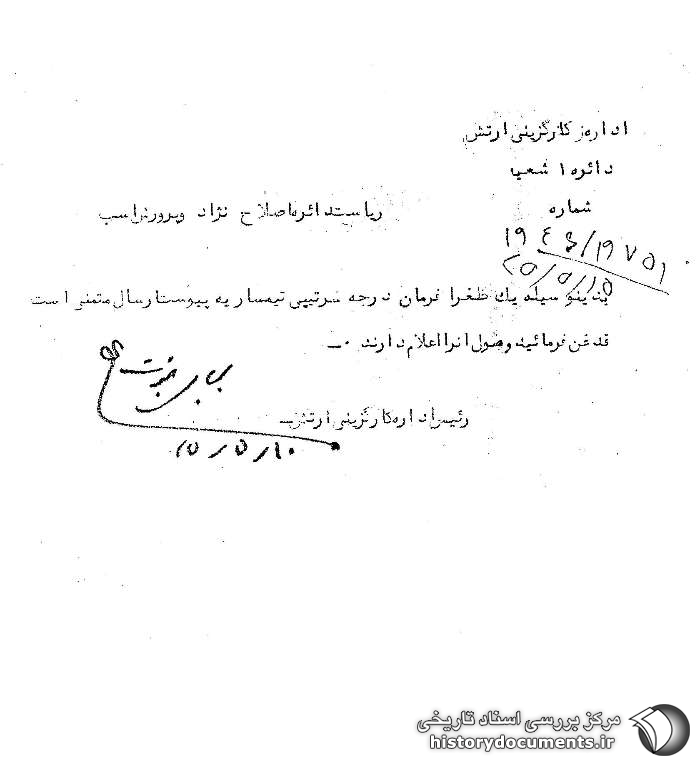 اداره کارگزینی ارتش
دائره ۱ شعبه
شماره
ریاست دائره اصلاح نژاد و پرورش اسب
۱۹۷۵۱
بدینوسیله یك طغرا فرمان درجه سرتیپی تیمسار به پیوست ارسال متمنی است
قدغن فرمائید وصول آنرا اعلام دارند ۰ـ
رئیس اداره کارگزینی ارتش ـ
مرکز بررسی اسناد تاریخی
historydocuments.ir